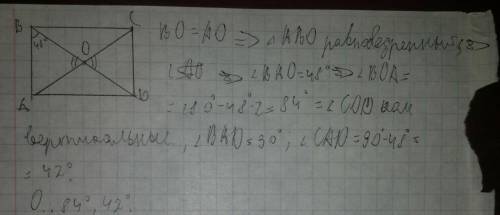 B C
48°
O
A D
BO = AO => ∠ABO равнобедренный =>
=> ∠BAO=48° => ∠BOA=
= 180°-48°·2 = 84° = ∠COD как
вертикальные, ∠BAD=90°, ∠CAD=90°-48°=
= 42°
О.: 84°, 42°